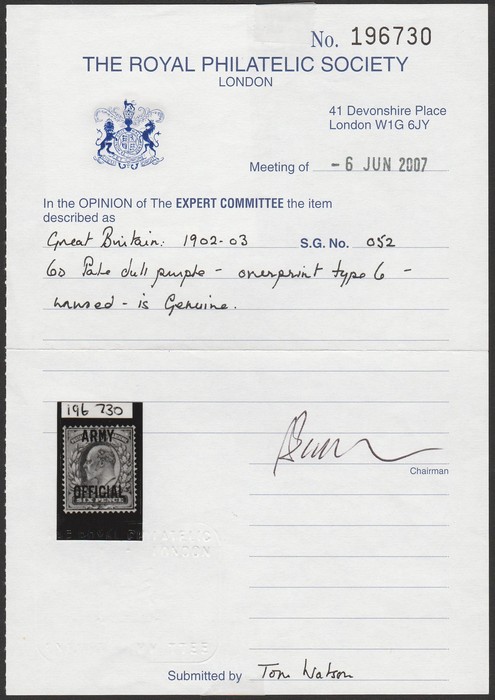 No. 196730
THE ROYAL PHILATELIC SOCIETY
LONDON
41 Devonshire Place
London W1G 6JY
Meeting of - 6 JUN 2007
In the OPINION of The EXPERT COMMITTEE the item
described as
Great Britain: 1902-03 S.G. No. 052
6D Pale dull purple - overprint type 6 -
unused - is Genuine.
196 730
ARMY
OFFICIAL
SIX PENCE
Chairman
LONDON
Submitted by Tom Watson